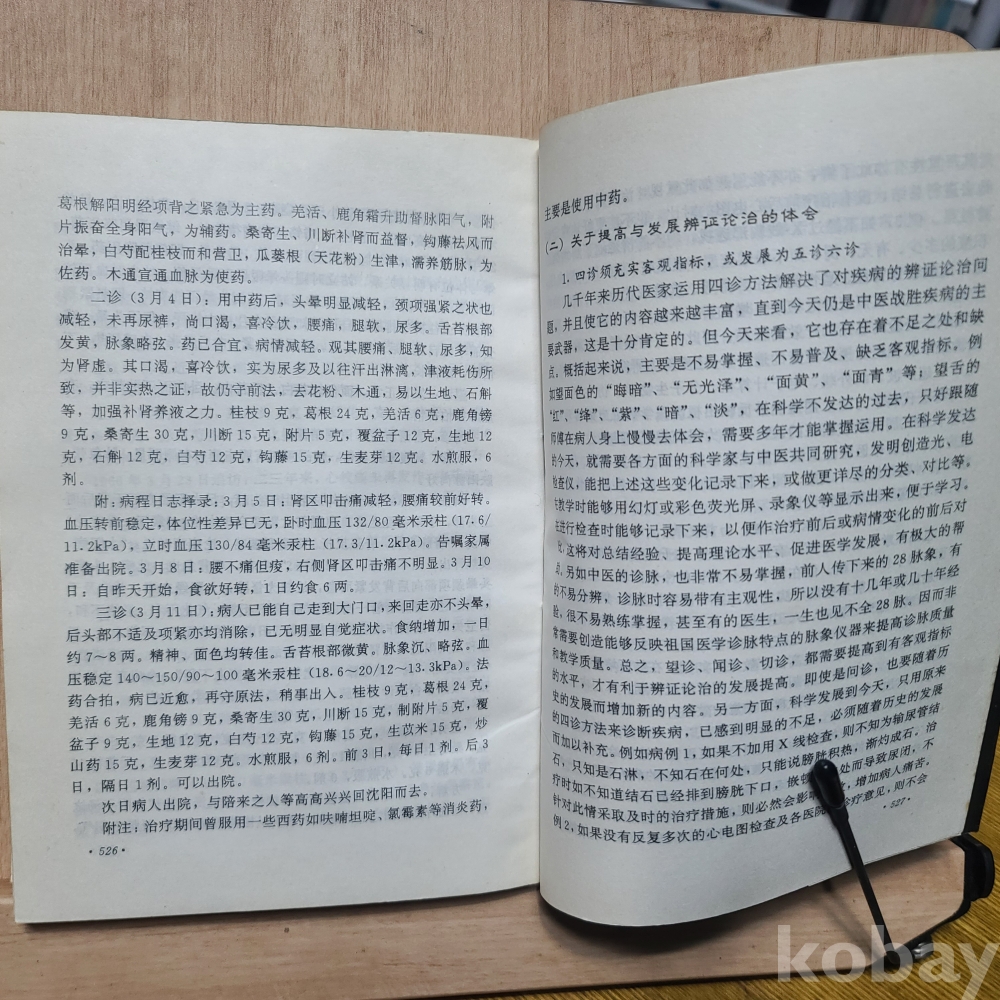 葛根解阳明经项背之紧急为主药。羌活、鹿角霜升助督脉阳气，附
片振奋全身阳气，为辅药。桑寄生、川断补肾而益督，钩藤祛风而
治晕，白芍配桂枝而和营卫，瓜蒌根（天花粉）生津，濡养筋脉，为
佐药。木通宣通血脉为使药。
二诊（3月4日）：用中药后，头晕明显减轻，颈项强紧之状也
减轻，未再尿裤，尚口渴，喜冷饮，腰痛，腿软，尿多。舌苔根部
发黄，脉象略弦。药已合宜，病情减轻。观其腰痛、腿软、尿多，知
为肾虚。其口渴，喜冷饮，实为尿多及以往汗出淋漓，津液耗伤所
致，并非实热之证，故仍守前法，去花粉、木通，易以生地、石斛
等，加强补肾养液之力。桂枝9克，葛根24克，羌活6克，鹿角镑
9克，桑寄生30克，川断15克，附片5克，覆盆子12克，生地12
克，石斛12克，白芍12克，钩藤15克，生麦芽12克。水煎服，6
剂。
附：病程日志择录：3月5日：肾区叩击痛减轻，腰痛较前好转。
血压转前稳定，体位性差异已无，卧时血压132/80毫米汞柱（17.6/
11.2kPa），立时血压130/84毫米汞柱（17.3/11.2kPa）。告嘱家属
准备出院。3月8日：腰不痛但疲，右侧肾区叩击痛不明显。3月10
日：自昨天开始，食欲好转，1日约食6两。
三诊（3月11日）：病人已能自己走到大门口，来回走亦不头晕，
后头部不适及项紧亦均消除，已无明显自觉症状。食纳增加，一日
约7～8两。精神、面色均转佳。舌苔根部微黄。脉象沉、略弦。血
压稳定140～150/90～100毫米汞柱（18.6～20/12～13.3kPa）。法
药合拍，病已近愈，再守原法，稍事出入。桂枝9克，葛根24克，
羌活6克，鹿角镑9克，桑寄生30克，川断15克，制附片5克，覆
盆子9克，生地12克，白芍12克，钩藤15克，生苡米15克，炒
山药15克，生麦芽12克。水煎服，6剂。前3日，每日1剂。后3
日，隔日1剂。可以出院。
次日病人出院，与陪来之人等高高兴兴回沈阳而去。
附注：治疗期间曾服用一些西药如呋喃坦啶、氯霉素等消炎药，
·526·
主要是使用中药。
（二）关于提高与发展辨证论治的体会
1.四诊须充实客观指标，或发展为五诊六诊
几千年来历代医家运用四诊方法解决了对疾病的辨证论治问
题，并且使它的内容越来越丰富，直到今天仍是中医战胜疾病的主
要武器，这是十分肯定的。但今天来看，它也存在着不足之处和缺
点。概括起来说，主要是不易掌握、不易普及、缺乏客观指标。例
如望面色的“晦暗”、“无光泽”、“面黄”、“面青”等；望舌的
“红”、“绛”、“紫”、“暗”、“淡”，在科学不发达的过去，只好跟随
师傅在病人身上慢慢去体会，需要多年才能掌握运用。在科学发达
的今天，就需要各方面的科学家与中医共同研究，发明创造光、电
检查仪，能把上述这些变化记录下来，或做更详尽的分类、对比等。
在教学时能够用幻灯或彩色荧光屏、录象仪等显示出来，便于学习。
在进行检查时能够记录下来，以便作治疗前后或病情变化的前后对
比，这将对总结经验、提高理论水平、促进医学发展，有极大的帮
另如中医的诊脉，也非常不易掌握，前人传下来的28脉象，有
的不易分辨，诊脉时容易带有主观性，所以没有十几年或几十年经
验，很不易熟练掌握，甚至有的医生，一生也见不全28脉。因而非
常需要创造能够反映祖国医学诊脉特点的脉象仪器来提高诊脉质量
和教学质量。总之，望诊、闻诊、切诊，都需要提高到有客观指标
的水平，才有利于辨证论治的发展提高。即使是问诊，也要随着历
史的发展而增加新的内容。另一方面，科学发展到今天，只用原来
的四诊方法来诊断疾病，已感到明显的不足，必须随着历史的发展
而加以补充。例如病例1，如果不加用X线检查，则不知为输尿管结
石，只知是石淋，不知石在何处，只能说膀胱积热，渐灼成石。治
疗时如不知道结石已经排到膀胱下口，嵌顿处而导致尿闭，不
针对此情采取及时的治疗措施，则必然会影，增加病人痛苦。
例2，如果没有反复多次的心电图检查及各医院诊疗意见，则不会
·527·
kobay